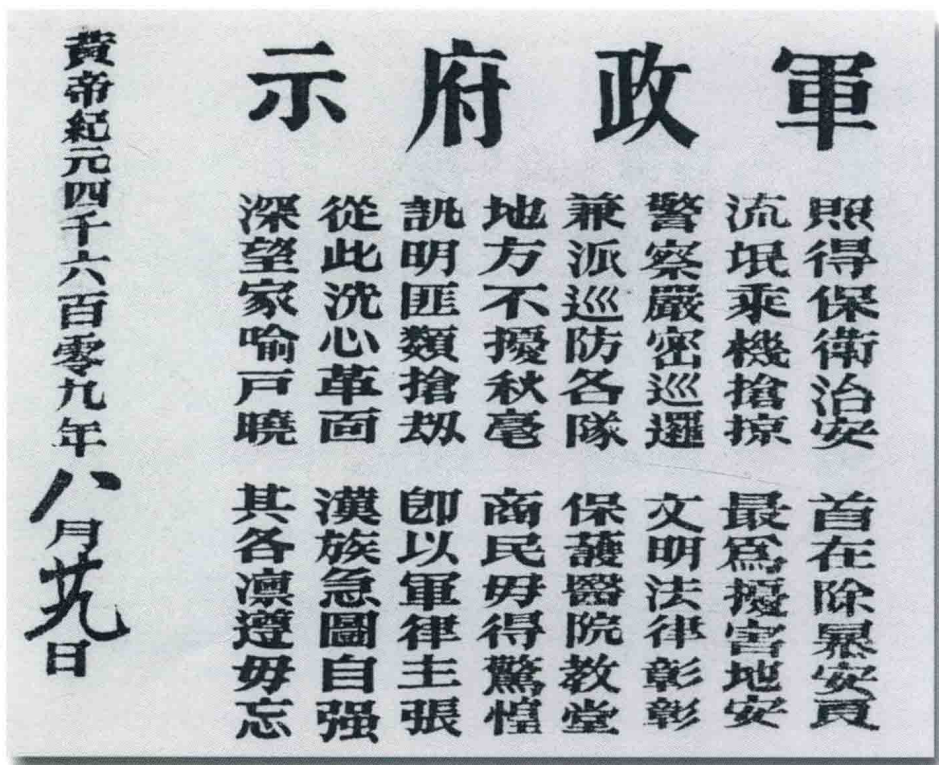 軍政府示
照得保衛治安 首在除暴安良
流氓乘機搶掠 最爲擾害地安
警察嚴密巡邏 文明法律彰彰
兼派巡防各隊 保護醫院教堂
地方不擾秋毫 商民毋得驚惶
訊明匪類搶刼 卽以軍律主張
從此洗心革面 漢族急圖自强
深望家喻戶曉 其各凛遵毋忘
黃帝紀元四千六百零九年八月廿九日